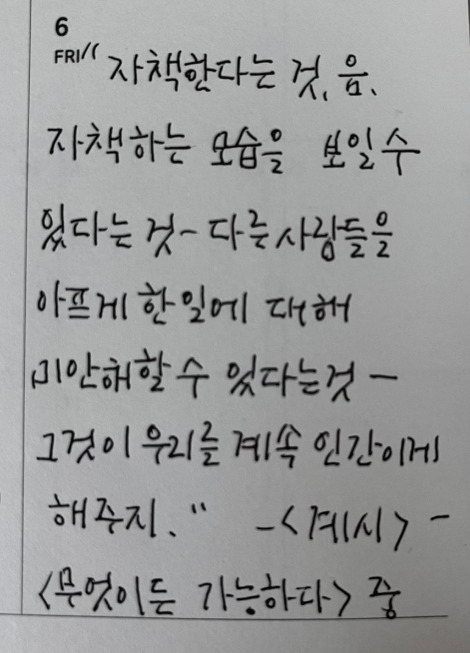 6
FRI // 자책한다는 것, 음,
자책하는 모습을 보일 수
있다는 것~ 다른 사람들을
아프게 한 일에 대해
미안해할 수 있다는 것 —
그것이 우리를 계속 인간이게
해주지." -<계시> -
<무엇이든 가능하다> 중